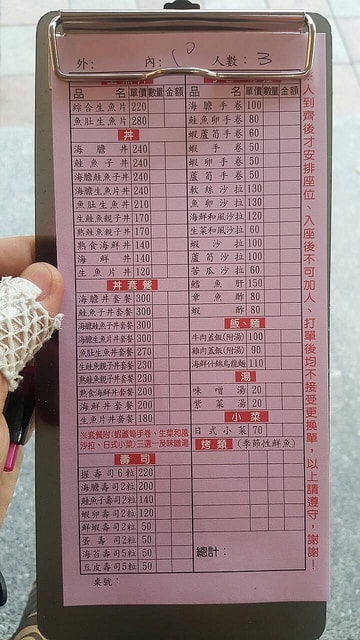 外： 內： 10 人數：3
品名 單價 數量 金額
綜合生魚片 220
魚肚生魚片 280
丼
海膽丼 240
鮭魚子丼 240
海膽鮭魚子丼 240
海膽生魚片丼 240
魚肚生魚丼 210
生鮭魚親子丼 170
熟鮭魚親子丼 170
熟食海鮮丼 140
海鮮丼 140
生魚片丼 120
丼套餐
海膽丼套餐 300
鮭魚子丼套餐 300
海膽鮭魚子丼套餐 300
海膽生魚片丼套餐 300
魚肚生魚丼套餐 270
生鮭魚親子丼套餐 230
熟鮭魚親子丼套餐 230
熟食海鮮丼套餐 200
海鮮丼套餐 200
生魚片丼套餐 180
※套餐附(蝦蘆筍手卷、生菜和風
沙拉、日式小菜)三選一及味噌湯
壽司
握壽司6粒 220
海膽壽司2粒 200
鮭魚子壽司2粒 140
蝦卵壽司2粒 120
鮮蝦壽司2粒 50
蛋壽司2粒 50
海苔壽司5粒 50
豆皮壽司5粒 50
桌號：
品名 單價 數量 金額
海膽手卷 100
鮭魚卵手卷 80
蝦蘆筍手卷 60
蝦手卷 50
蝦卵手卷 50
蘆筍手卷 50
軟絲沙拉 130
魚卵沙拉 130
海鮮和風沙拉 120
生菜和風沙拉 60
蝦沙拉 100
蘆筍沙拉 100
苦瓜沙拉 60
鱈魚肝 150
章魚醋 80
蝦醋 80
飯、麵
牛肉蓋飯(附湯) 100
雞肉蓋飯(附湯) 90
海鮮什錦烏龍麵 110
湯
味噌湯 20
紫菜湯 20
小菜
日式小菜 70
烤類 (季節性鮮魚)
總計：
※人到齊後才安排座位、入座後不可加人、打單後均不接受更換單，以上請遵守，謝謝！